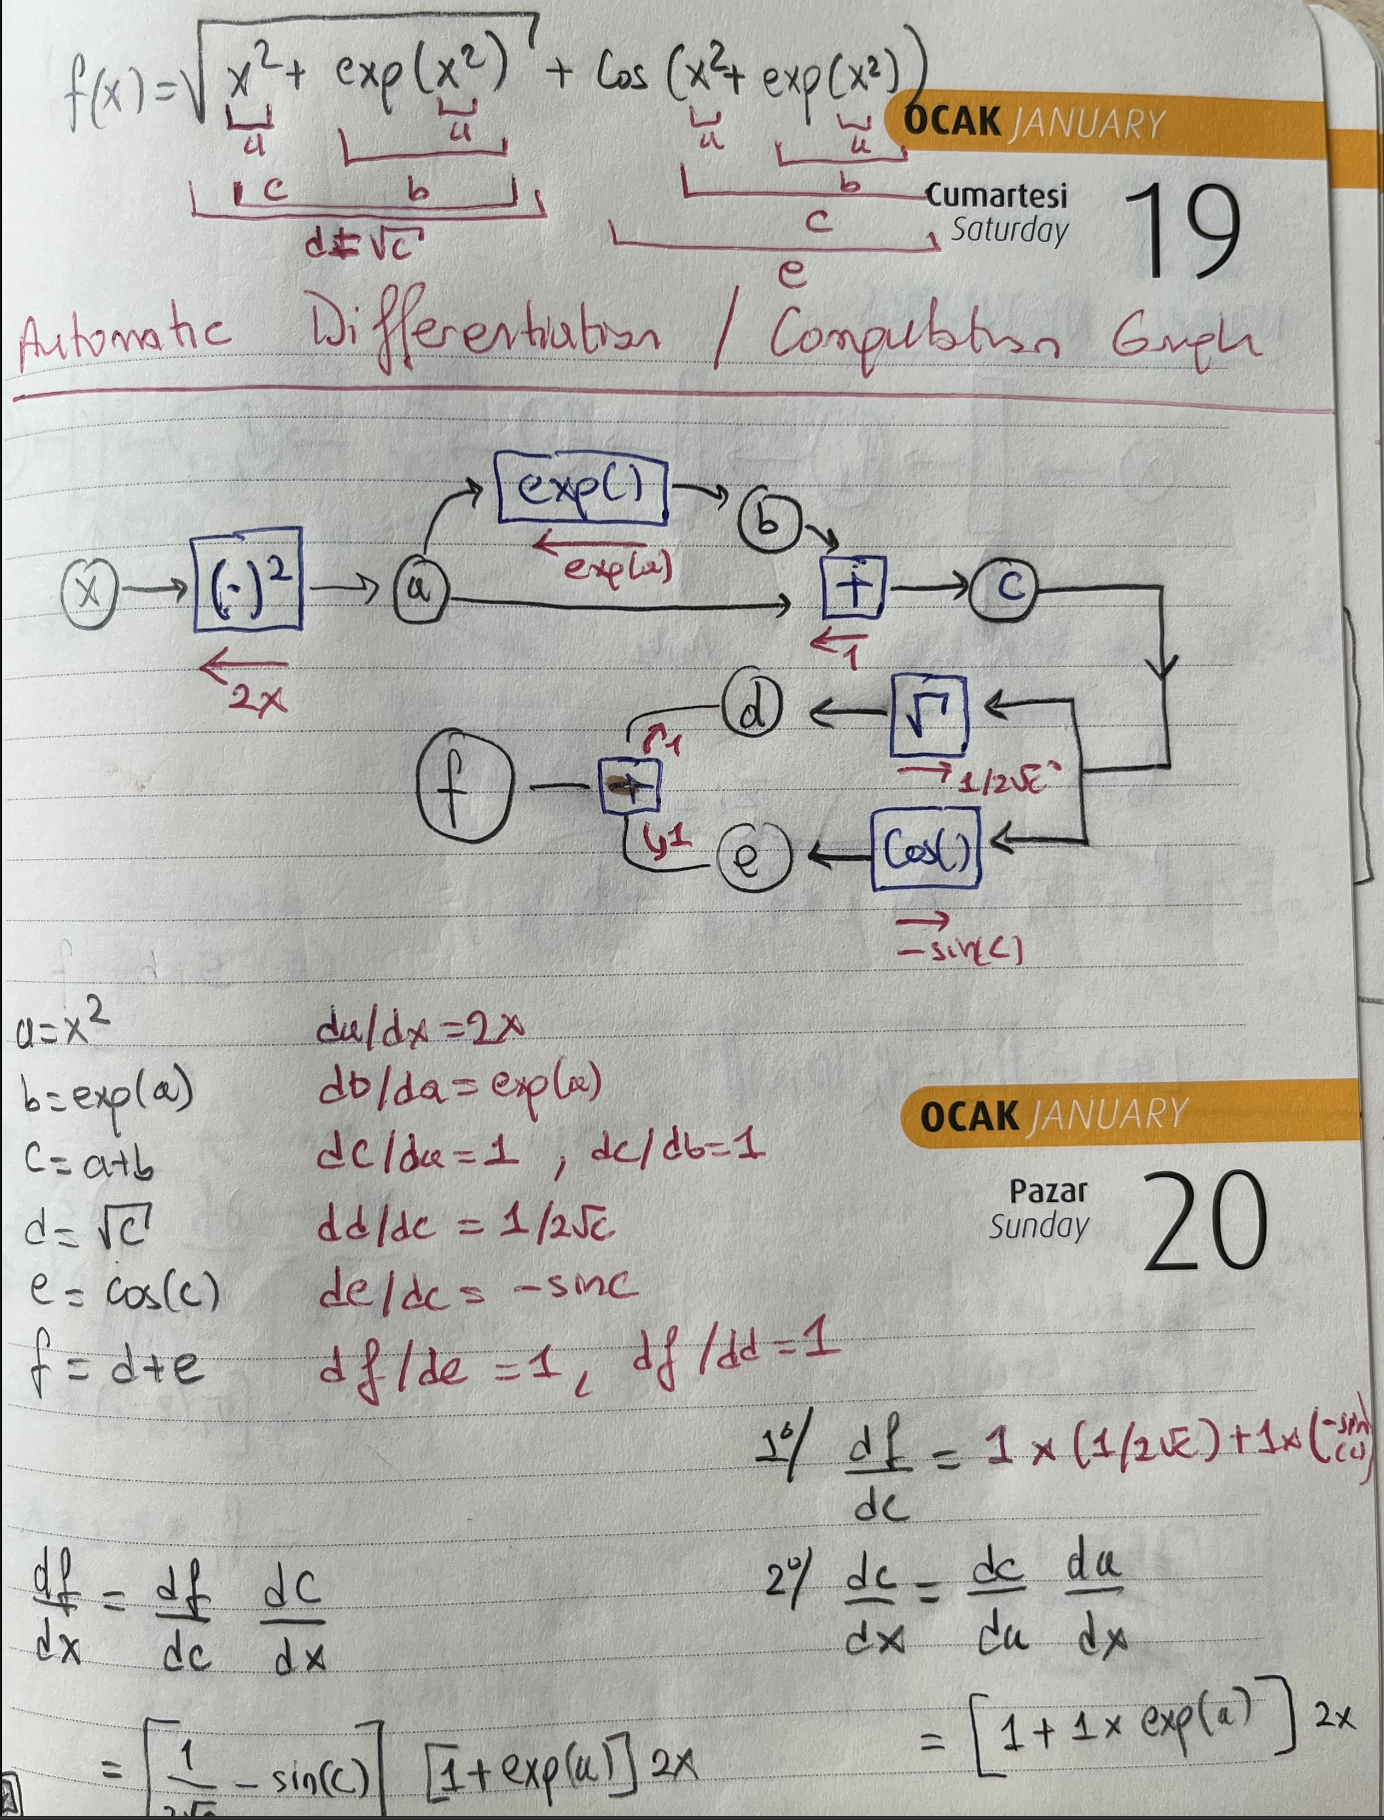 f(x) = √(x² + exp(x²)) + Cos (x² + exp(x²))
a a a a
c b b
d = √c c
e
OCAK JANUARY
Cumartesi 19
Saturday
Automatic Differentiation / Computation Graph
exp() b
exp(a)
x (·)² a + c
2x 1
d √
1 1/2√c
f +
1 e Cos()
-sin(c)
a = x² da/dx = 2x
b = exp(a) db/da = exp(a)
c = a+b dc/da = 1 , dc/db = 1
d = √c dd/dc = 1/2√c
e = cos(c) de/dc = -sinc
f = d+e df/de = 1, df/dd = 1
OCAK JANUARY
Pazar 20
Sunday
1°/ df/dc = 1 x (1/2√c) + 1x (-sin(c))
df/dx = df/dc dc/dx
2°/ dc/dx = dc/da da/dx
= [1 + 1 x exp(a)] 2x
= [1/2√c - sin(c)] [1 + exp(a)] 2x